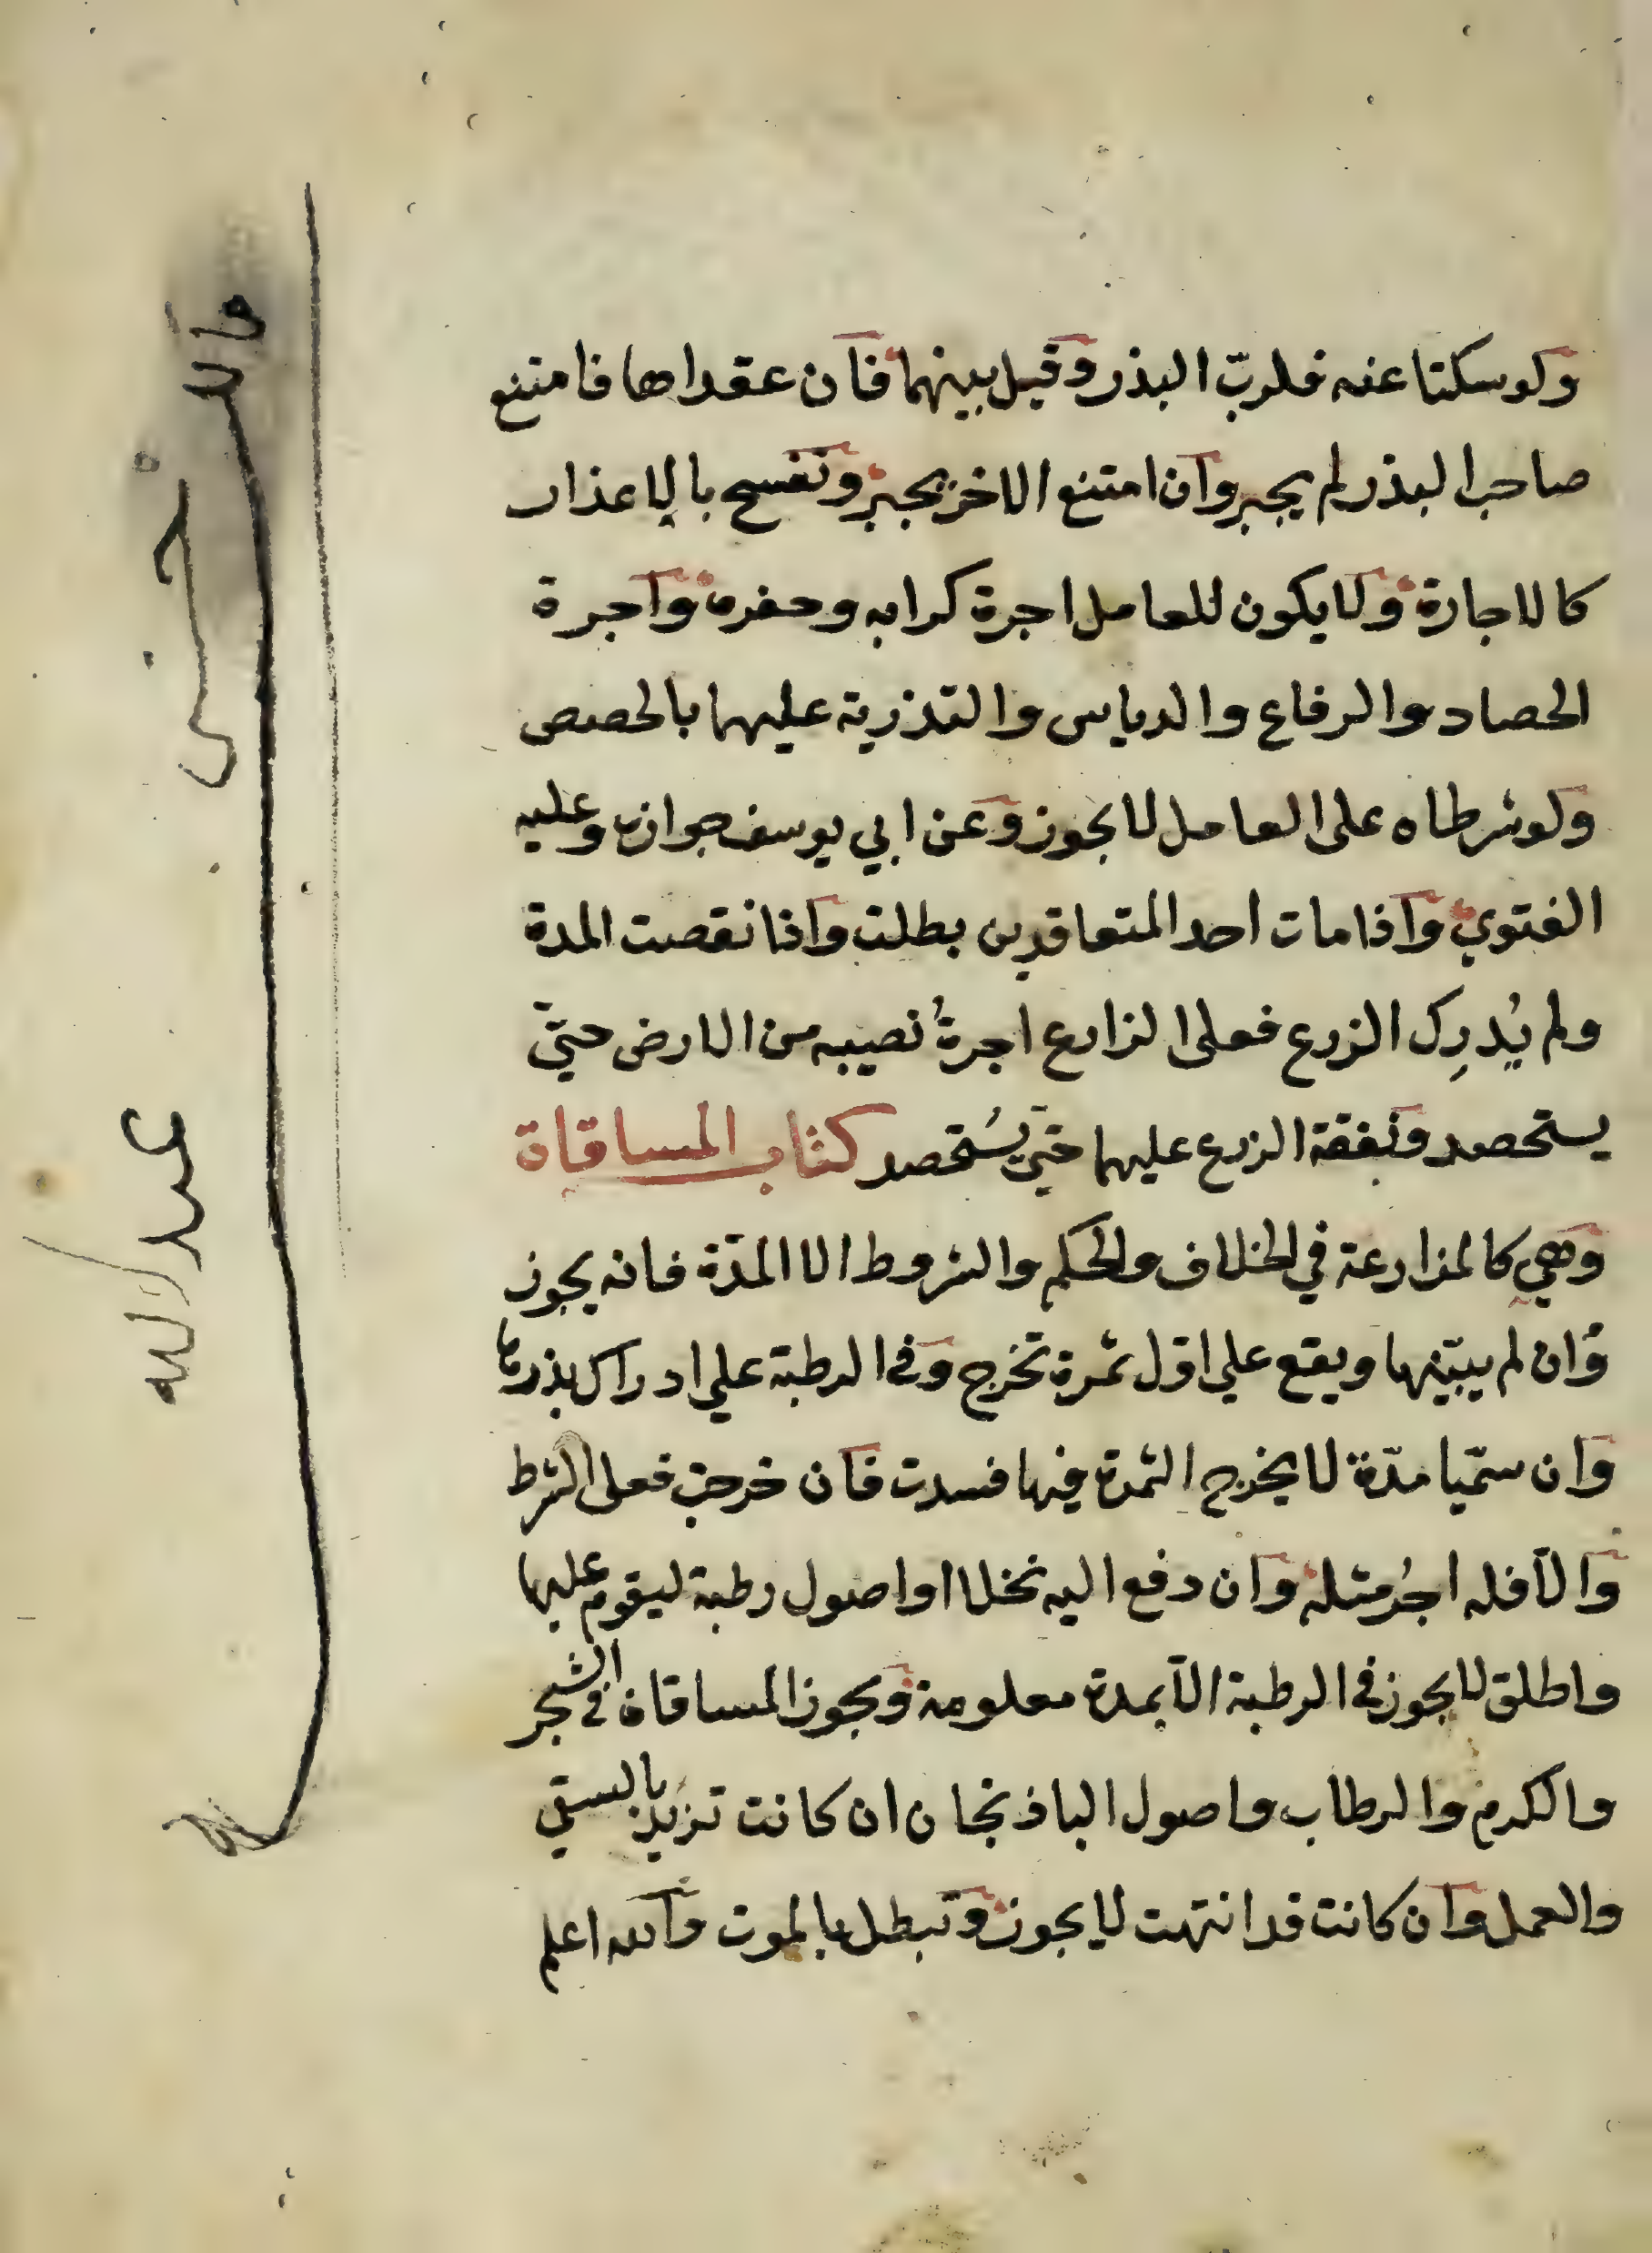 ولو سكتا عنه فلربّ البذر وقيل بينهما فان عقداها فامتنع
صاحب البذر لم يجبر وان امتنع الاخر يجبر وتفسح بالاعذار
كالاجارة ولا يكون للعامل اجرة كرابه وحفره واجرة
الحصاد والرفاع والدياس والتذرية عليهما بالحصص
ولو شرطاه على العامل لا يجوز وعن ابي يوسف جوازه وعليه
الفتوي واذا مات احد المتعاقدين بطلت واذا نقصت المدة
ولم يُدرِك الزرع فعلى الزارع اجرةُ نصيبه من الارض حتيّ
يستحصد ونفقة الزرع عليهما حتي يُستحصد كتاب المساقاة
وهي كالمزارعة في الخلاف والحكم والشروط الا المدّة فانه يجوز
وان لم يبيّنها ويقع علي اوّل ثمرة تخرج وفي الرطبة علي ادراك بذرها
وان سمّيا مدّة لا يخرج الثمرة فيها فسدت فان خرجت فعلى الشرط
والاّ فله اجرُ مثله وان دفع اليه نخلا او اصول رطبة ليقوم عليها
واطلق لا يجوز في الرطبة الاّ بمدة معلومة ويجوز المساقاة في الشجر
والكرم والرطاب واصول الباذنجان ان كانت تزيد بالسقي
والعمل وان كانت قد انتهت لا يجوز وتبطل بالموت والله اعلم